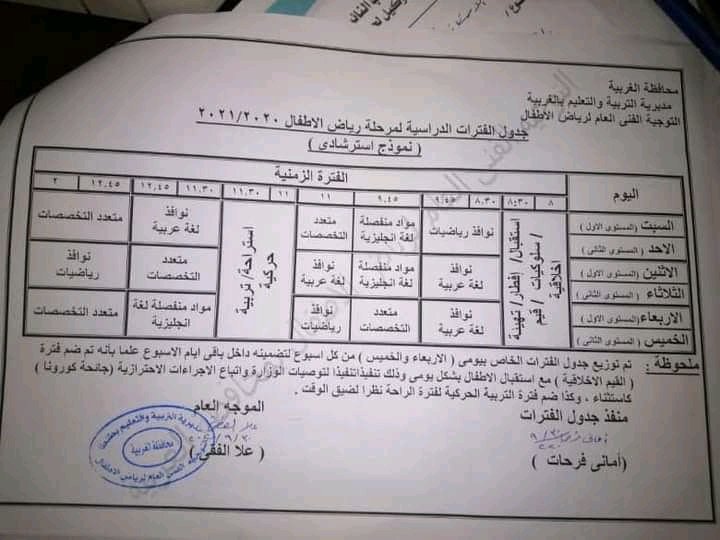 محافظة الغربية
مديرية التربية والتعليم بالغربية
التوجية الفنى العام لرياض الاطفال
جدول الفترات الدراسية لمرحلة رياض الاطفال ٢٠٢١/٢٠٢٠
( نموذج استرشادى )
اليوم
الفترة الزمنية
٨ ٨:٣٠ ٨.٣٠ ٩.٤٥ ٩.٤٥ ١١ ١١ ١١.٣٠ ١١.٣٠ ١٢.٤٥ ١٢.٤٥ ٢
السبت (المستوى الاول )
الاحد (المستوى الثانى )
استقبال/ إفطار/ تهيئة / سلوكيات / قيم اخلاقية
نوافذ رياضيات
مواد منفصلة لغة انجليزية
متعدد التخصصات
استراحة/ تربية حركية
نوافذ لغة عربية
متعدد التخصصات
الاثنين (المستوى الاول )
الثلاثاء (المستوى الثانى )
نوافذ لغة عربية
مواد منفصلة لغة انجليزية
نوافذ لغة عربية
متعدد التخصصات
نوافذ رياضيات
الاربعاء (المستوى الاول )
الخميس (المستوى الثانى )
نوافذ لغة عربية
متعدد التخصصات
نوافذ رياضيات
مواد منفصلة لغة انجليزية
متعدد التخصصات
ملحوظة : تم توزيع جدول الفترات الخاص بيومى ( الاربعاء والخميس ) من كل اسبوع لتضمينه داخل باقى ايام الاسبوع علما بأنه تم ضم فترة
( القيم الاخلاقية ) مع استقبال الاطفال بشكل يومى وذلك تنفيذاتنفيذا لتوصيات الوزارة واتباع الاجراءات الاحترازية (جائحة كورونا )
كاستثناء ، وكذا ضم فترة التربية الحركية لفترة الراحة نظرا لضيق الوقت .
منفذ جدول الفترات
الموجه العام
(أمانى فرحات )
( علا الفقى )
محافظة الغربية